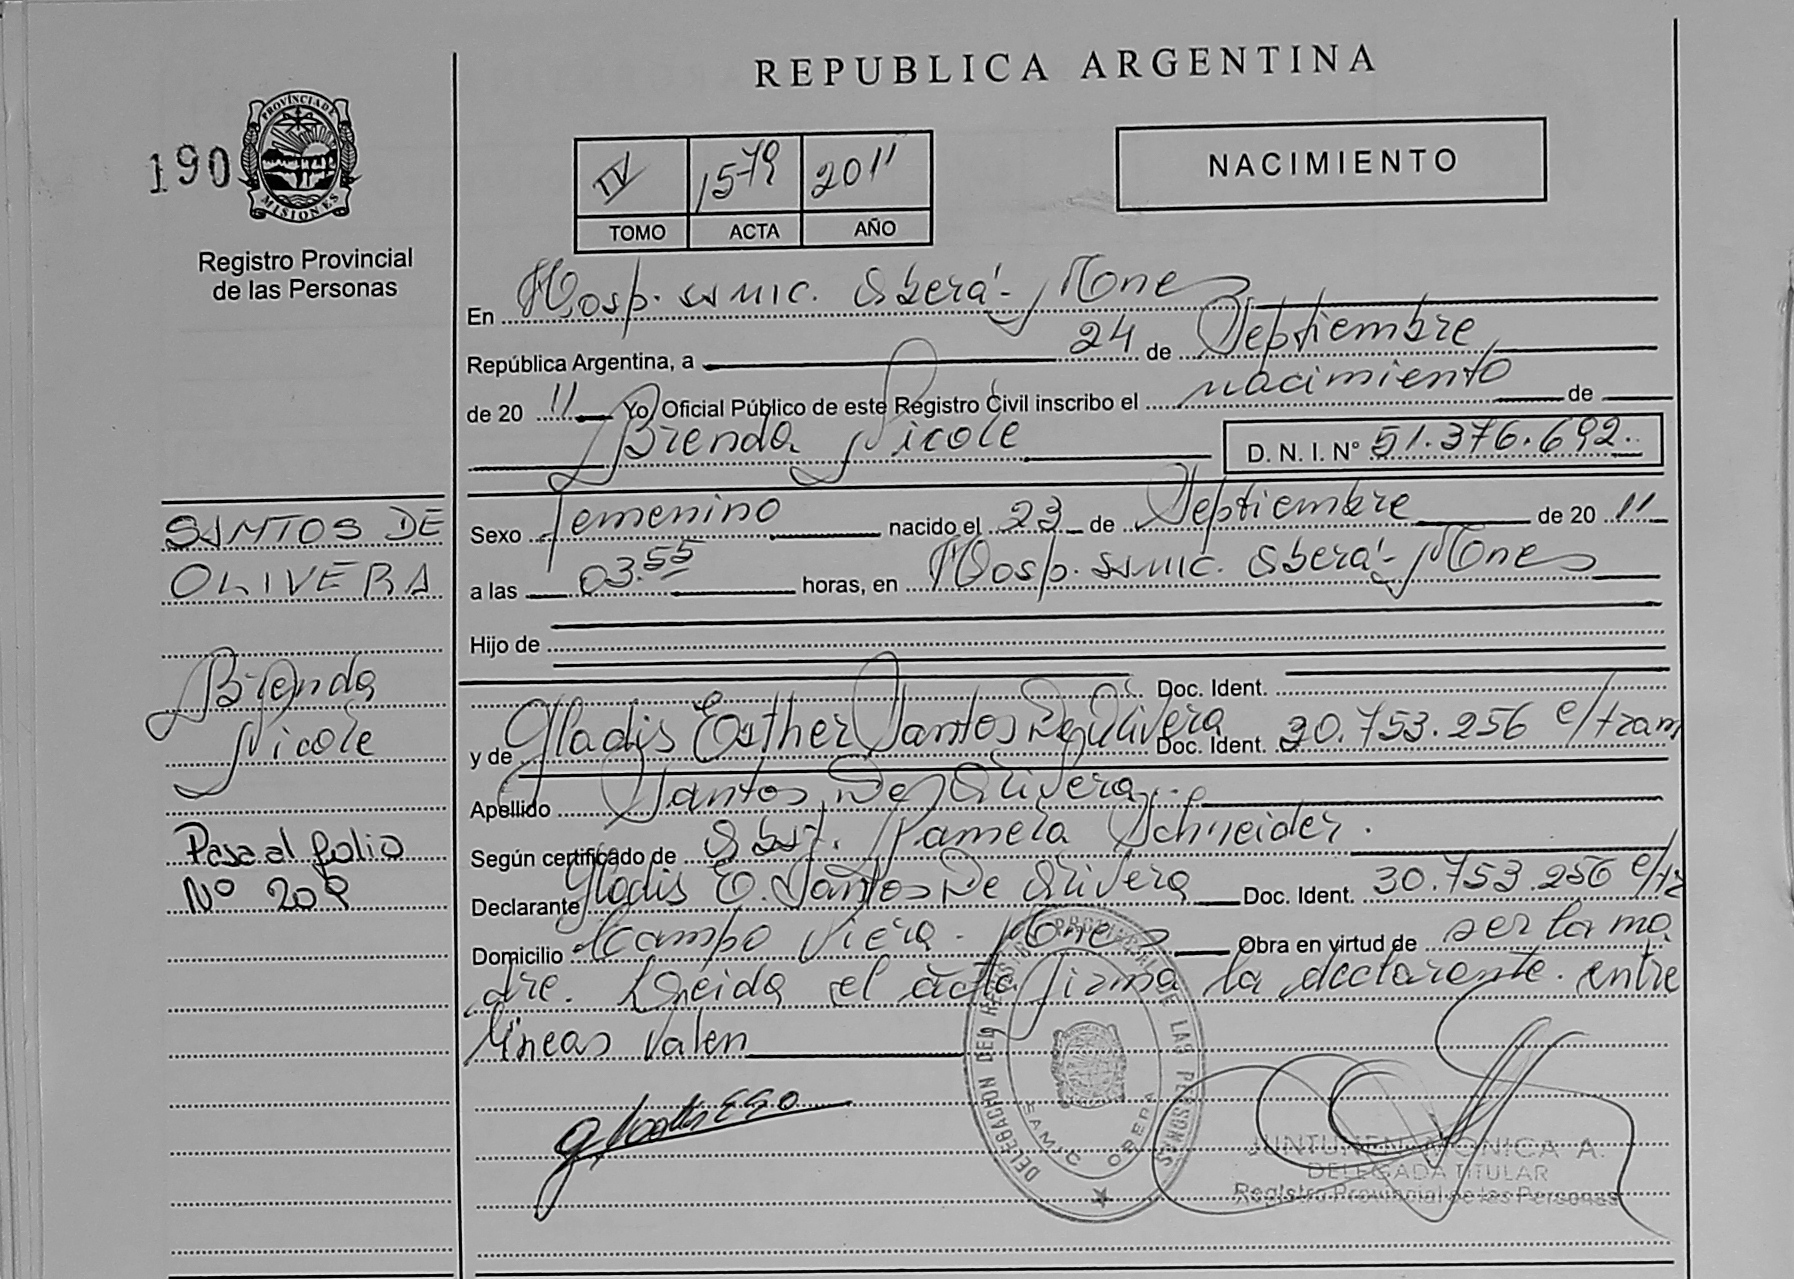 REPUBLICA ARGENTINA
190
PROVINCIA DE
MISIONES
Registro Provincial
de las Personas
IV 1579 2011
TOMO ACTA AÑO
NACIMIENTO
En Hosp. SAMIC. Oberá - Mones
República Argentina, a 24 de Septiembre
de 20 11 Yo, Oficial Público de este Registro Civil inscribo el nacimiento de
Brenda Nicole D. N. I. Nº 51.376.692..
SANTOS DE
OLIVERA
Brenda
Nicole
Pasa al folio
Nº 209
Sexo femenino nacido el 23 de Septiembre de 20 11
a las 03.55 horas, en Hosp. SAMIC. Oberá - Mones
Hijo de
Doc. Ident.
y de Gladis Esther Santos De Olivera Doc. Ident. 30.753.256 e/tram
Apellido Santos De Olivera..
Según certificado de Obst. Pamela Schneider.
Declarante Gladis E. Santos De Olivera Doc. Ident. 30.753.256 e/tr
Domicilio Campo Viera - Mones Obra en virtud de ser la ma
dre. Leida el acta firma la declarante. entre
líneas valen
DELEGACION DEL REGISTRO PROVINCIAL DE LAS PERSONAS
SAMIC OBERA
JUNTUNEN MONICA A.
DELEGADA TITULAR
Registro Provincial de las Personas